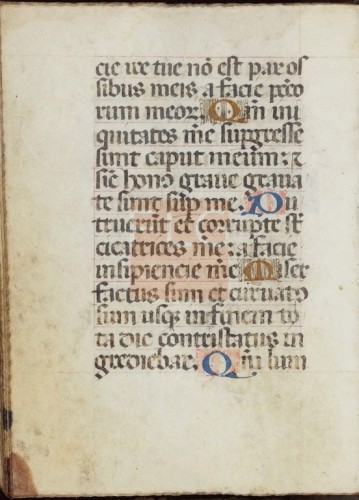 cie ire tue nō est pax os
sibus meis a facie pcō
rum meoꝝ. Qm̄ ini
quitates me̅ supgresse
sunt caput meum: ⁊
sic̄ honꝰ graue graua
te sunt sup me. Pu
truerūt et corrupte st̄
cicatrices me̅: a facie
insipiencie me̅ Miser
factus sum et curuatꝰ
sum usqꝫ in finem to
ta die contristatus in
grediebar. Qm̄ lum